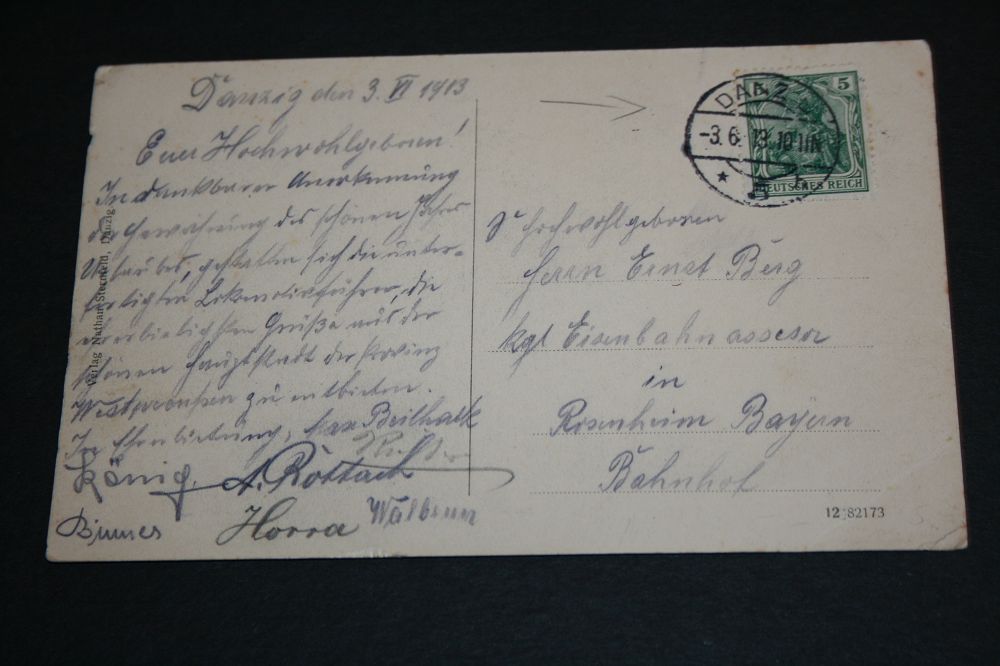 Danzig den 3. VI 1913
Euer Hochwohlgeboren!
In dankbarer Anerkennung
der Gewährung des schönen Jahres
Urlaubes, gestatten sich die unter-
fertigten Lokomotivführer, die
ehrerbietigsten Grüße aus der
schönen Hauptstadt der Provinz
Westpreußen zu entbieten.
In Ehrerbietung, Max Beilhack
König. A. Rottach
Horra
Verlag Nathan Sternfeld, Danzig
DANZ
-3.6.13.10-11N
5
DEUTSCHES REICH
Hochwohlgeboren
Herrn Ernst Berg
kgl Eisenbahnassesor
in
Rosenheim Bayern
Bahnhof
12 82173